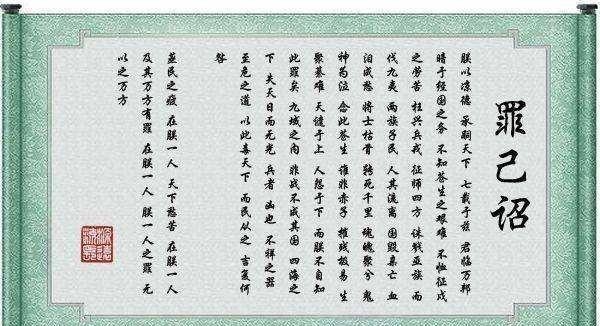 罪己诏
朕以凉德 承嗣天下 七载于兹 君临万邦
暗于经国之务 不知苍生之艰难 不恤征戍
之劳苦 枉兴兵戎 征师四方 诛戮亚族 而
伐九夷 两族子民 人其流离 国毁巢亡 血
泪成愁 将士枯骨 骋死千里 魂魄聚兮 鬼
神为泣 念此苍生 谁非赤子 摧残极易 生
聚甚难 天谴于上 人怨于下 而朕不自知
此罪矣 九域之内 非战不成其国 四海之
下 失天日而无光 兵者 凶也 不祥之器
至危之道 以此毒天下 而民从之 言复何
咎
蒸民之疲 在朕一人 天下愁苦 在朕一人
及其万方有罪 在朕一人 朕一人之罪 无
以之万方